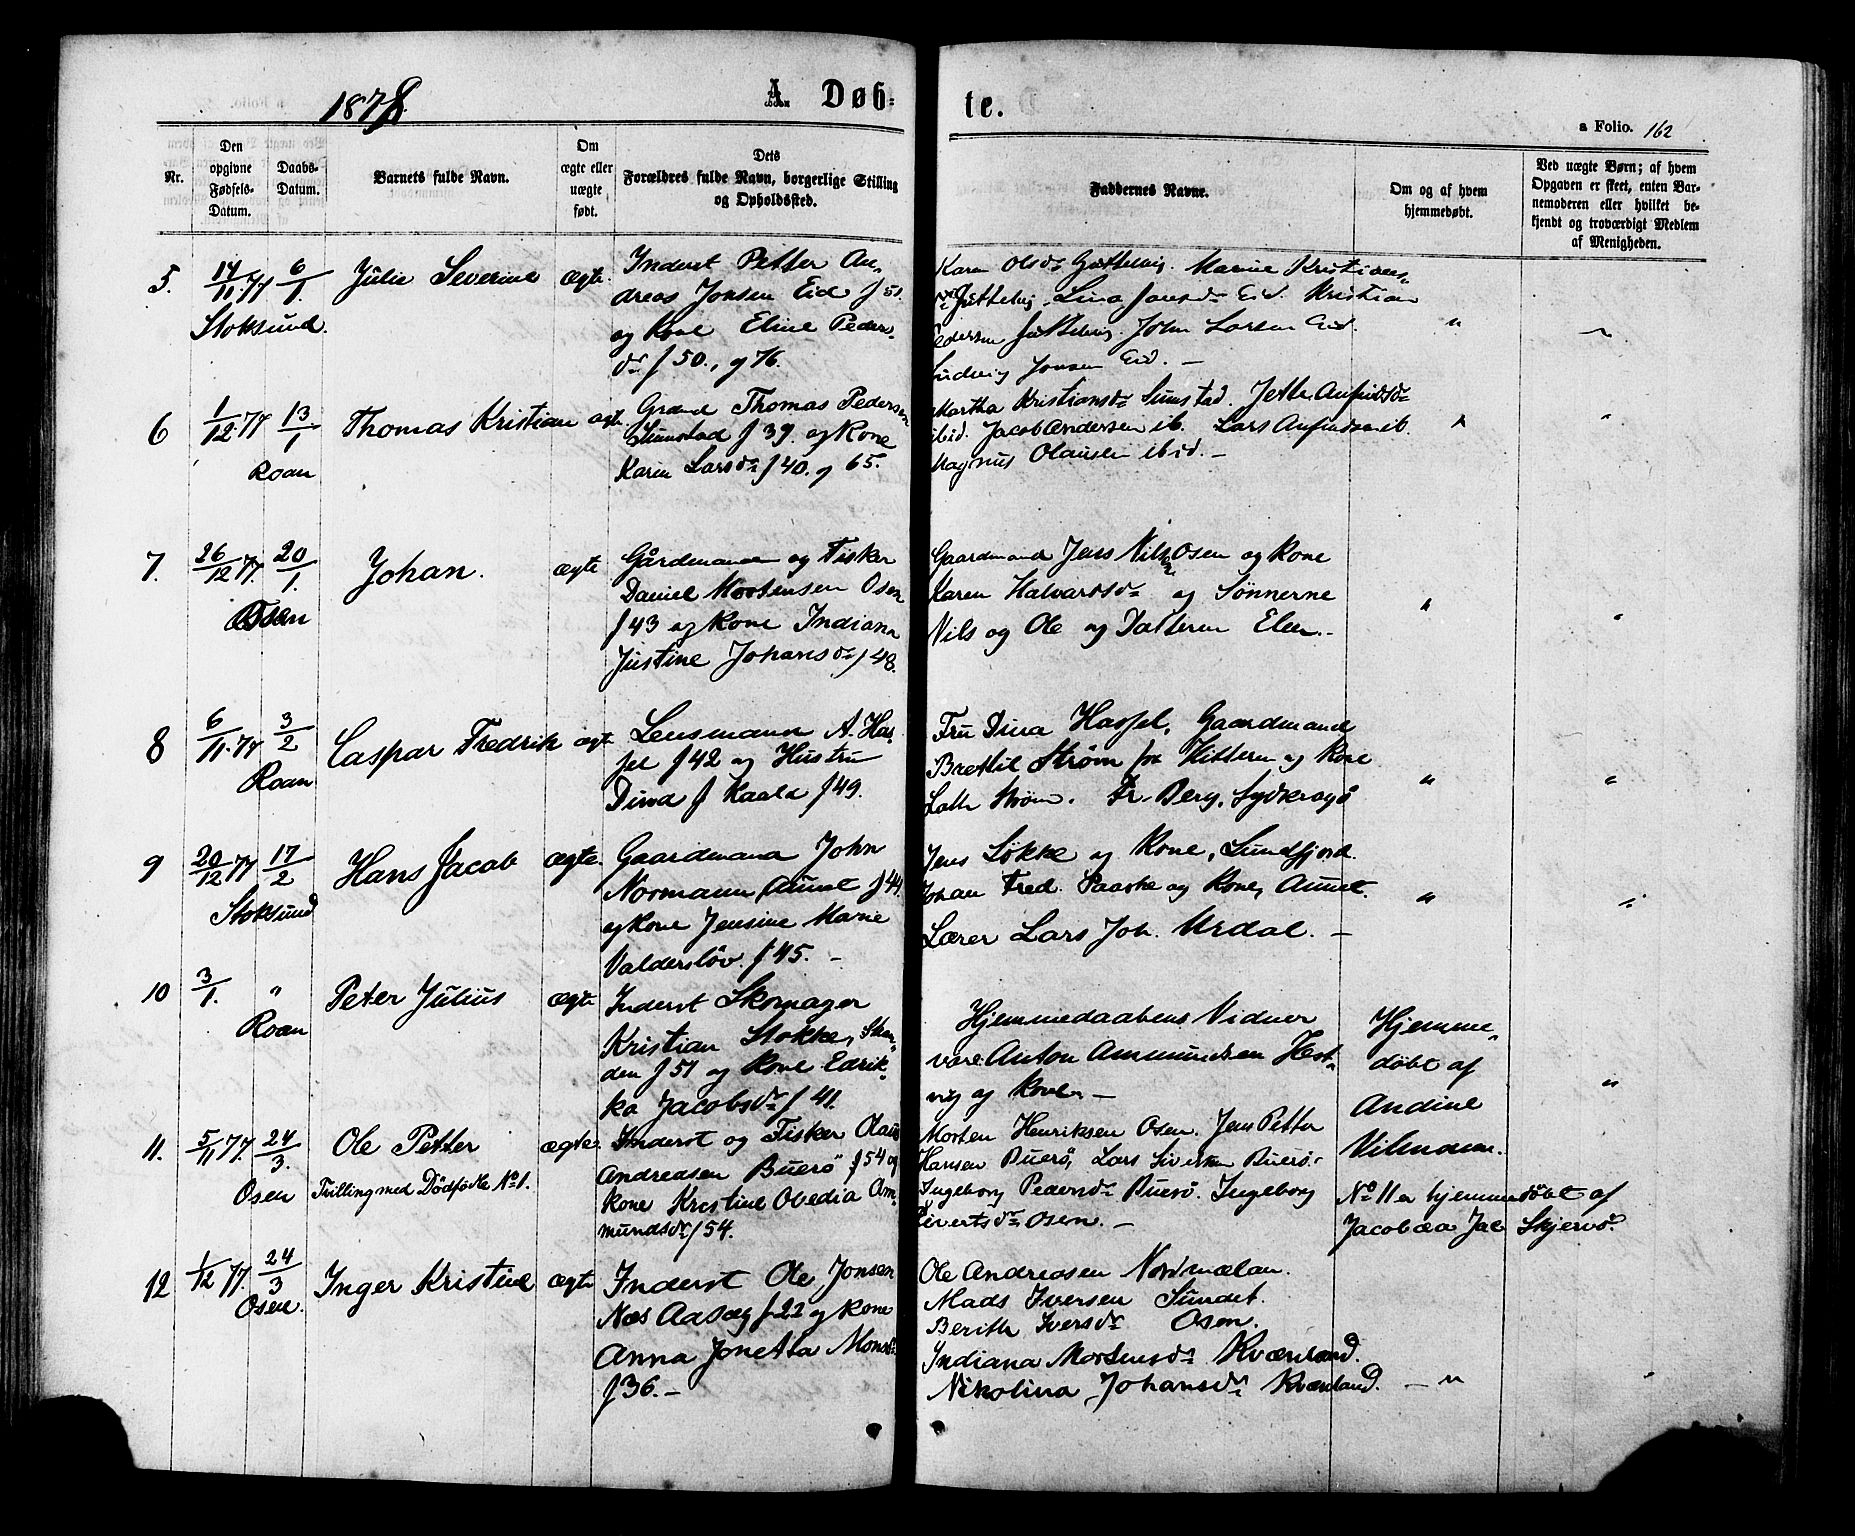 1878.
A Døb=
te.
a Folio. 162
Nr.
Den opgivne Fødsels-Datum.
Daabs-Datum.
Barnets fulde Navn.
Om ægte eller uægte født.
Dets Forældres fulde Navn, borgerlige Stilling og Opholdssted.
Faddernes Navne.
Om og af hvem hjemmedøbt.
Ved uægte Børn; af hvem Opgaven er skeet, enten Barnemoderen eller hvilket bekjendt og troværdigt Medlem af Menigheden.
5. 14/11.77 6/1. Julie Severine ægte.
Stoksund.
Inderst Petter An-
dreas Jonsen Eid f 51.
og Kone Eline Peder-
dr f 50., g 76.
Karen Olsdr Marine Kristians-
dr Lina Jonsdr Eid. Kristian
Pedersen John Larsen Eid.
Ludvig Jonsen Eid. —
" "
6 1/12.77 13/1 Thomas Kristian ægt.
Roan
Grænd Thomas Pedersen
Sumstad f 39. og Kone
Karen Larsdr f 40. g 65.
Martha Kristiansdr Sumstad. Jette Anfindsdr
ibid. Jacob Andersen ib. Lars Anfindsen ib.
Magnus Olausen ibid. —
" "
7. 26/12 77. 20/1. Johan. ægte
Osen
Gårdmand og Fisker
Daniel Mortensen Osen
f 43 og Kone Indiana
Justine Johansdr f 48.
Gaardmand Jens Nils Osen og Kone
Karen Halvardsdr og Sønnerne
Nils og Ole og Datteren Elen. —
" "
8 6/11.77 3/2 Caspar Fredrik ægt.
Roan
Lensmann A. Has-
sel f 42 og Hustru
Dina f Kaald f 49.
Fru Dina Hassel, Gaardmand
Brettil Strøm fra Hitteren og Kone
Strøm. Fr. Berg, Sydkrogø
" "
9 20/12 77 17/2 Hans Jacob ægte.
Stoksund
Gaardmand John
Normann, Aunet f 44.
og Kone Jensine Marie
Valderslöv. f 45. —
Jens Løkke og Kone, Sundfjord.
Johan Fred. Paaske og Kone, Aunet.
Lærer Lars Joh. Urdal. —
" "
10 3/1. " Peter Julius ægte
Roan
Inderst Skomager
Kristian Stokke, Skan-
den f 51 og Kone Edrik-
ka Jacobsdr f 41.
Hjemmedaabens Vidner
vare Anton Ammundsen Hest-
vig og Kone. —
Hjemme-
døbt af
Andine
Vilmann.
"
11. 5/11 77. 24/3. Ole Petter ægte.
Osen Trilling med Dödfødte No 1.
Inderst og Fisker Olaus
Andreasen Buerö f 54 og
kone Kristine Ovedia Am-
mundsdr f 54.
Morten Henriksen Osen. Jens Petter
Hansen Buerö, Lars Sivertsen Buerö.
Ingeborg Pedersdr Buerö. Ingeborg
Sivertsdr Osen. —
No 11 er hjemmedöbt af
Jacobæa Jac Skjervö.
12 1/12 77. 24/3 Inger Kristine ægte
Osen.
Inderst Ole Jonsen
Næs Aasæg f 22 og kone
Anna Jonetta Monsdr
f 36. —
Ole Andreasen Nordmælan.
Mads Iversen Sundet.
Berith Iversdr Osen.
Indiana Mortensdr Kvænland.
Nikolina Johansdr Kvænland. — " "